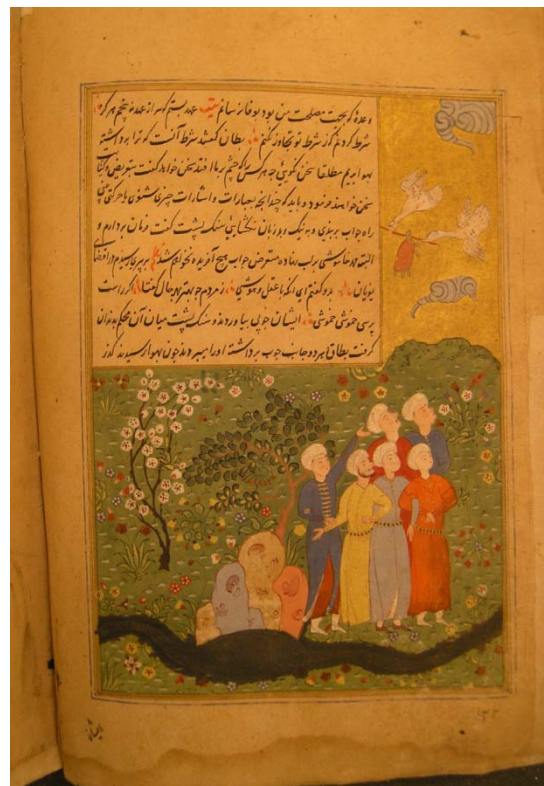 وعده که بجهت مصلحت من بود بوفا رسانم بیت عهد بستم که سر از عهده نپیچم هرگز
شرط کردم که از شرط تو تجاوز نکنم بطان گفتند شرط آنست که ترا برداشته
بهوا بریم مطلقا سخن نگوئی چه هر کس را که چشم بر ما افتد سخن خواهد گفت بتعریض و کنایت
سخن خواهند فرمود و باید که چندانچه بعبارات و اشارات چیزی شنوی یا حرکتی بینی
راه جواب بربندی و به نیک و بد زبان نگشایی سنک پشت گفت فرمان بردارم و
البته مهر خاموشی بر لب نهاده متعرض جواب هیچ آفریده نخواهم شد به پیری رسیدم در اقصای
یونان بدو گفتم ای آنکه با عقل و هوشی ز مردم چه بهتر بهر حال گفتا گر راست
پرسی خموشی خموشی ایشان چوبی بیاوردند و سنک پشت میان آن محکم بدندان
گرفت بطان هر دو جانب چوب برداشته او را میبردند چون بهوا رسیدند گذر
ایشان